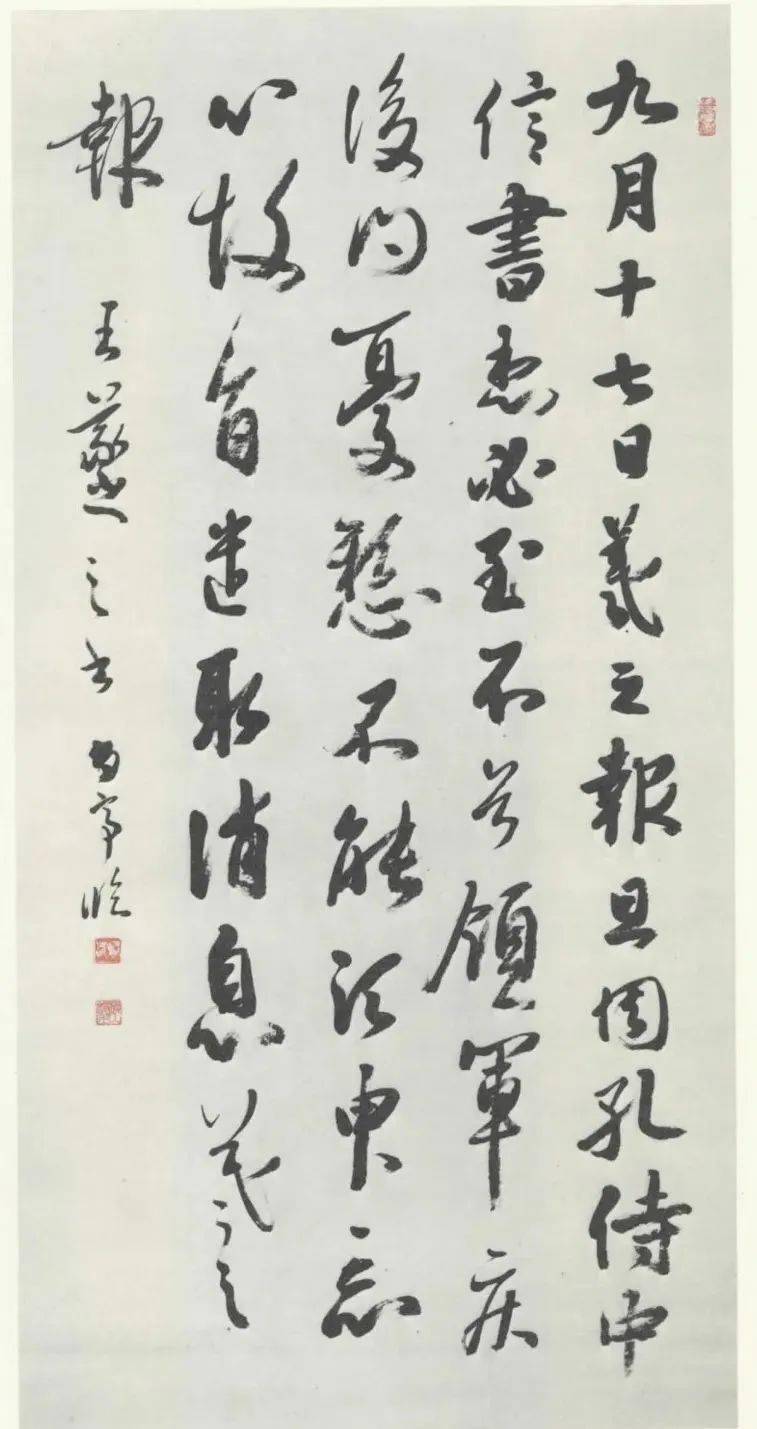 九月十七日羲之報且因孔侍中
信書想必至不知領軍疾
後問憂懸不能須臾忘
心故旨遣取消息羲之
報
王羲之書 亭臨